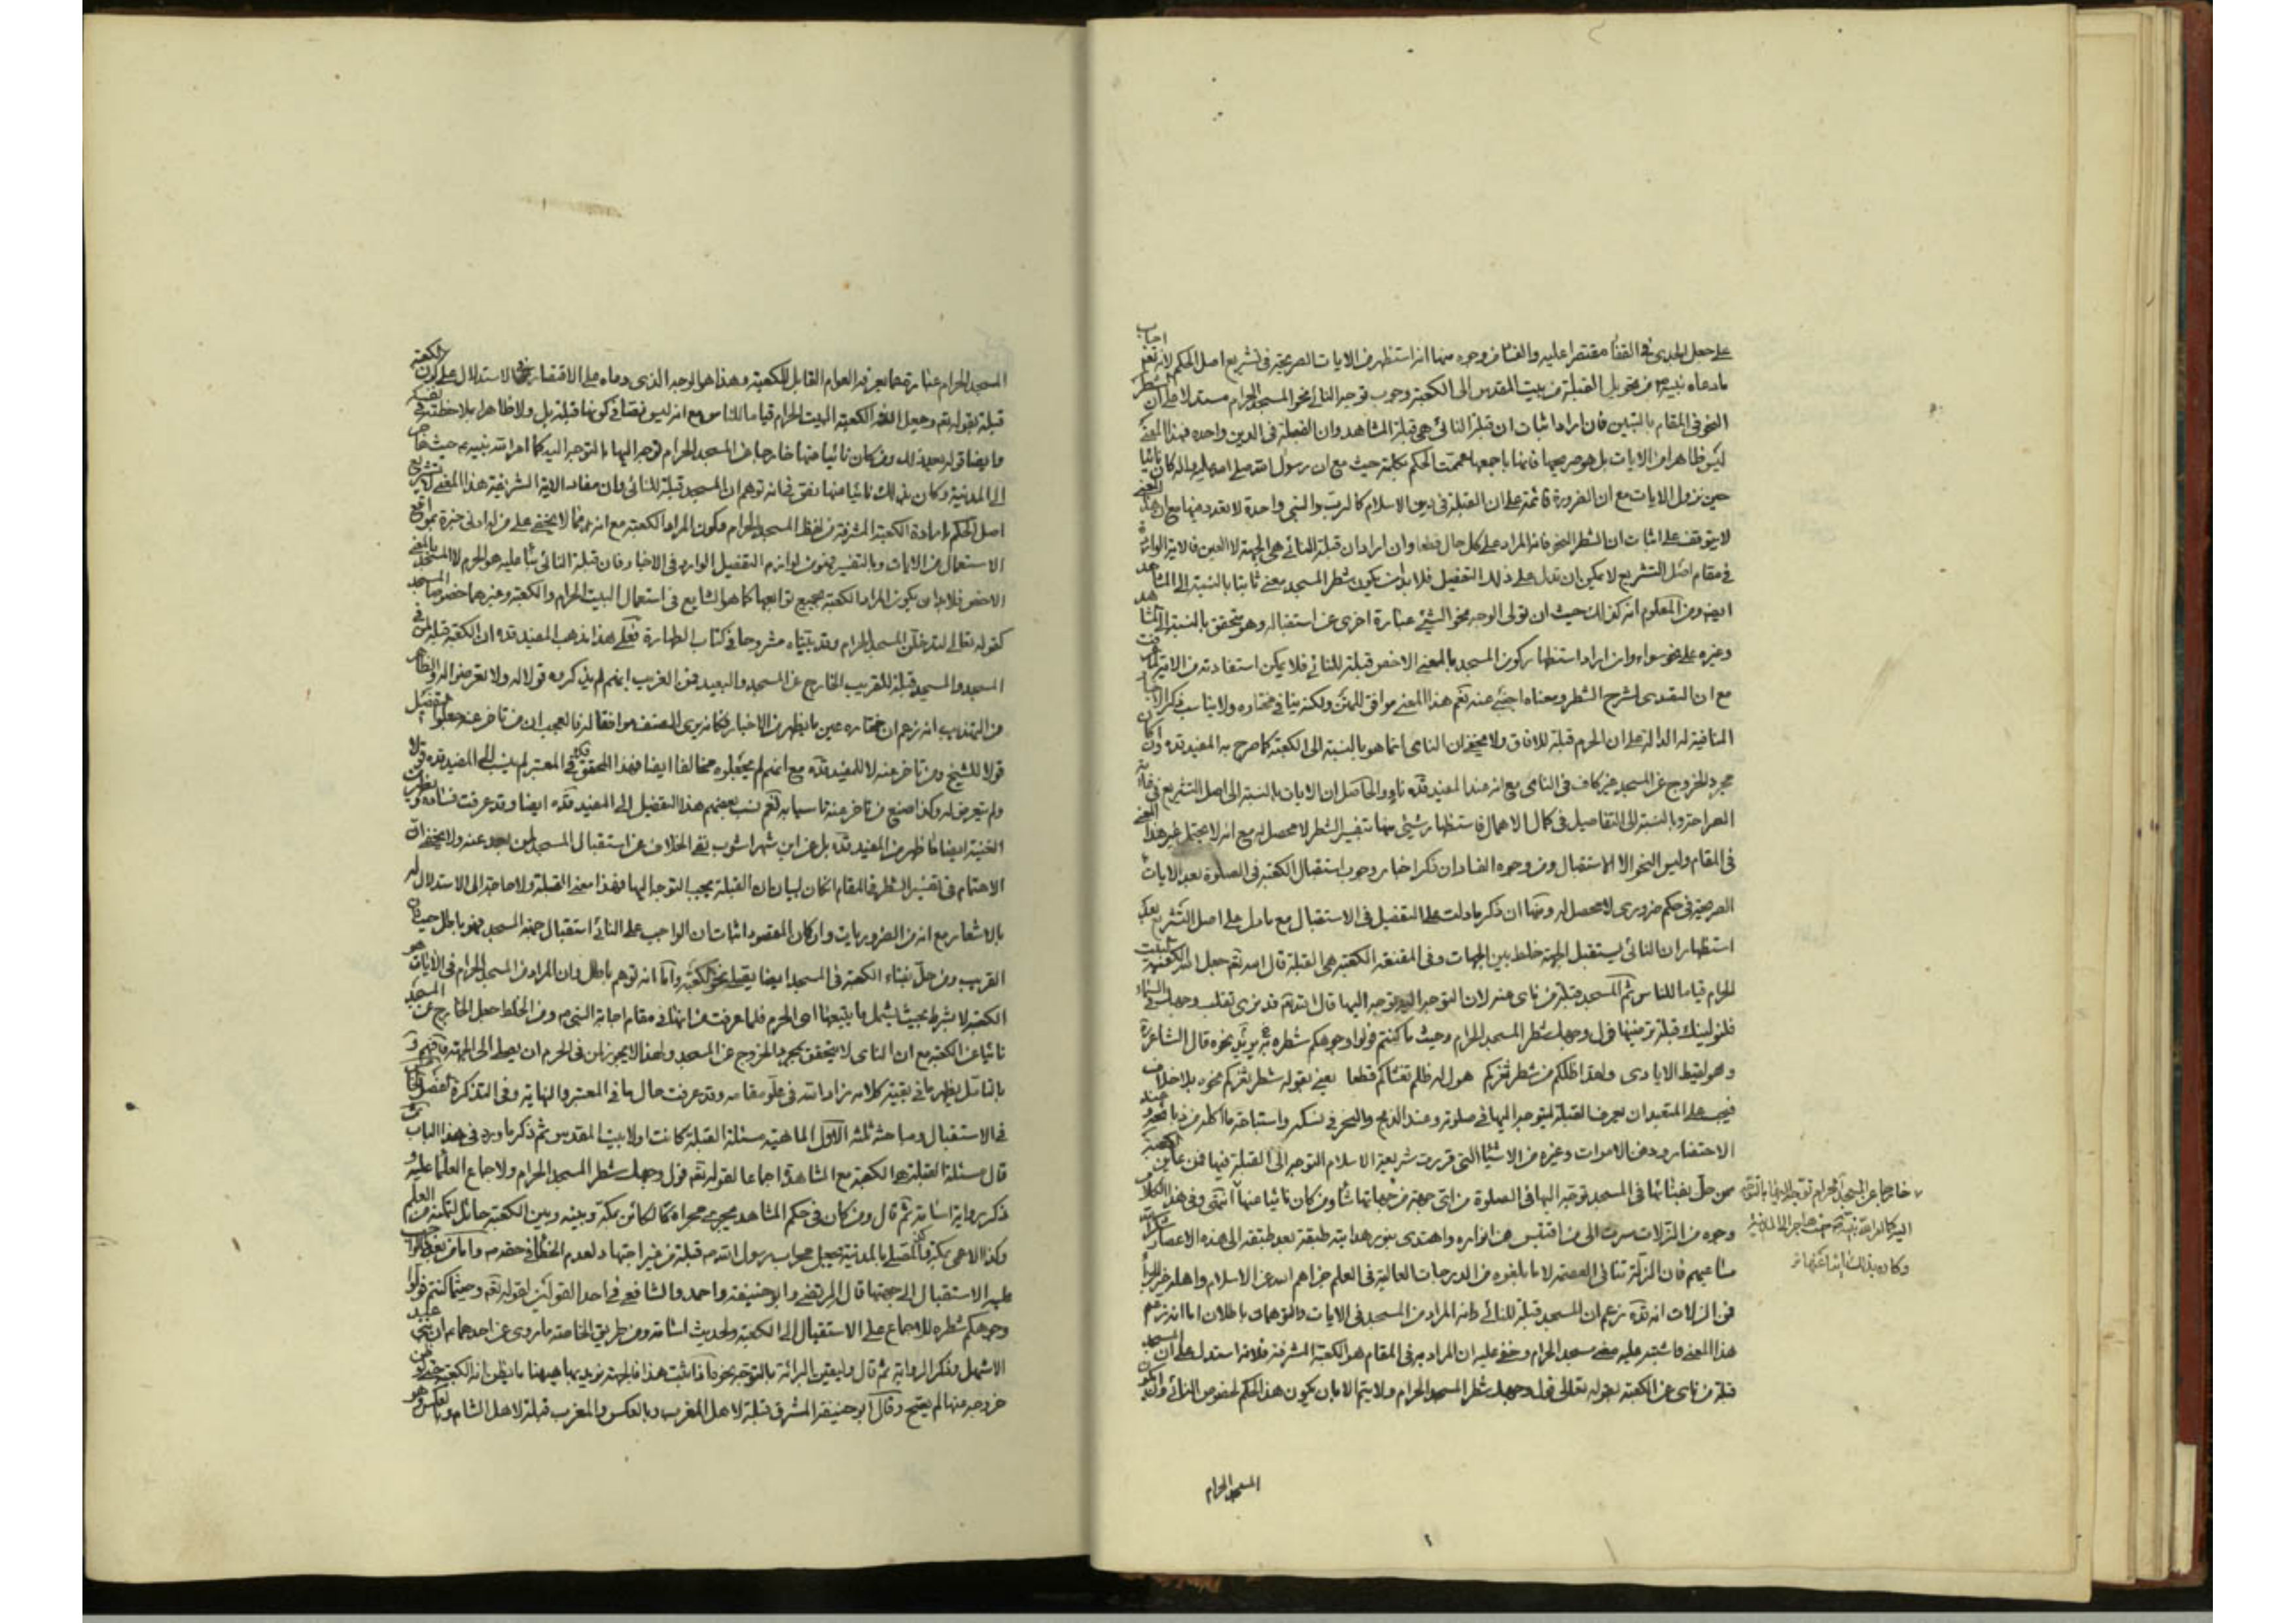 على جعل الجدى في القفا مقتصرا عليه والفساد من وجوه منها انه استظهر من الايات الصريحة في تشريع اصل الحكم لانه تعم اجاب
ما دعاه نبيه ص من تحويل القبلة من بيت المقدس الى الكعبة وجوب توجه النائي نحو المسجد الحرام مستدلا على ان الشطر
النحو في المقام بالتبين فان اراد اثبات ان قبلة النائي هي قبلة المشاهد وان القبلة في الدين واحدة فهذا المعنى
ليس ظاهرا من الايات بل هو صريحها فانها باجمعها عممت الحكم بكلمة حيث مع ان رسول الله صلى الله عليه واله كان نائيا
حين نزول الايات مع ان الضرورة قائمة على ان القبلة في دين الاسلام كالرب والنبي واحدة لا تعدد فيها مع ان هذا المعنى
لا يتوقف على اثبات ان الشطر النحو فانه المراد على كل حال قطعا وان اراد ان قبلة النائي هي الجهة لا العين فالاية الواردة
في مقام اصل التشريع لا يمكن ان تدل على ذلك التفصيل فلا بد ان يكون شطر المسجد بمعنى ثابتا بالنسبة الى المشاهد
ايضا ومن المعلوم انه كذلك حيث ان تولى الوجه نحو الشيء عبارة اخرى عن استقباله وهو يتحقق بالنسبة الى المشاهد
وغيره على نحو سواء وان اراد استظهار كون المسجد بالمعنى الاخص قبلة للنائي فلا يمكن استفادته من الاية لما عرفت
مع ان التصدى لشرح الشطر ومعناه اجنبي عنه نعم هذا المعنى موافق للمتن ولكنه ينافي مختاره ولا يناسب ذكر الاخبار
المنافية له الدالة على ان الحرم قبلة للافاق ولا يخفى ان النائي انما هو بالنسبة الى الكعبة كما صرح به المفيد قده وان كان
مجرد الخروج عن المسجد غير كاف في النائي مع انه عند المفيد قده ناء والحاصل ان الايات بالنسبة الى اصل التشريع في غاية
الصراحة وبالنسبة الى التفاصيل في كمال الاهمال فاستظهار شيء منها بتفسير الشطر لا محصل له مع انه لا يحتمل غير هذا المعنى
في المقام وليس النحو الا الاستقبال ومن وجوه الفساد ان ذكر اخبار وجوب استقبال الكعبة في الصلوة بعد الايات
الصريحة في حكم ضروري لا محصل له ومنها ان ذكر ما دلت على التفصيل في الاستقبال مع ما دل على اصل التشريع بعد
استظهار ان النائي يستقبل الجهة خلط بين الجهات وفي المقنعة الكعبة هي القبلة قال الله تعم جعل الله الكعبة البيت
الحرام قياما للناس ثم المسجد قبلة من نأى عنه لان التوجه اليه توجه اليها قال الله تعم قد نرى تقلب وجهك في السماء
فلنولينك قبلة ترضيها فول وجهك شطر المسجد الحرام وحيث ما كنتم فولوا وجوهكم شطره ثم يريد نحوه قال الشاعر
وهو لقيط الايادى وقد اظلكم من شطر ثغركم هول له ظلم تغشاكم قطعا يعني بقوله شطر ثغركم نحوه بلا خلاف
فيجب على المتعبد ان يعرف القبلة ليتوجه اليها في صلوته وعند الذبح والنحر في نسكه واستباحة ما اكله من ذبائحه وعند
الاحتضار ودفن الاموات وغيره من الاشياء التي قررت شريعة الاسلام التوجه الى القبلة فيها فمن عاين الكعبة
ممن حل بفنائها في المسجد توجه اليها في الصلوة من اى جهة من جهاتها شاء ومن كان نائيا عنها انتهى وفي هذا الكلام
وجوه من الزلات سرت الى من اقتبس من انواره واهتدى بنور هدايته طبقة بعد طبقة الى هذه الاعصار
مساعيهم فان الزلة تنافي العصمة لا ما بلغوه من الدرجات العالية في العلم جزاهم الله عن الاسلام واهله خير الجزاء
فمن الزلات انه قده زعم ان المسجد قبلة للنائي وانه المراد من المسجد في الايات والتوهمان باطلان اما انه زعم
هذا المعنى فاشتبه عليه معنى مسجد الحرام وخفى عليه ان المراد به في المقام هو الكعبة المشرفة فلانه استدل على ان المسجد
قبلة من نأى عن الكعبة بقوله تعالى فول وجهك شطر المسجد الحرام ولا يتم الا بان يكون هذا الحكم لخصوص النائي وان يكون
خارجا عن المسجد الحرام توجه اليها بالتوجه
اليه كما امر الله نبيه ص حيث هاجر الى المدينة
وكان بذلك نائيا عنها
المسجد الحرام
المسجد الحرام عبارة عما يعرفه العوام القابل للكعبة وهذا هو الوجه الذى دعاه على الاقتصار في الاستدلال على كون الكعبة
قبلة بقوله تعم وجعل الله الكعبة البيت الحرام قياما للناس مع انه ليس نصا في كونها قبلة بل ولا ظاهرا بملاحظة نفسه
وايضا قوله بعد ذلك ومن كان نائيا عنها خارجا عن المسجد الحرام توجه اليها بالتوجه اليه كما امر الله نبيه ص حيث هاجر
الى المدينة وكان بذلك نائيا عنها نص في انه توهم ان المسجد قبلة للنائي وان مفاد الاية الشريفة هذا المعنى لا تشريع
اصل الحكم بارادة الكعبة المشرفة من لفظ المسجد الحرام فكون المراد الكعبة مع انه مما لا يخفى على من له ادنى خبرة بمواقع
الاستعمال من الايات وبالتفسير فهو من لوازم التفصيل الوارد في الاخبار فان قبلة النائي بناء عليه هو الحرم لا المسجد بالمعنى
الاخص فلا بد ان يكون المراد الكعبة بجميع توابعها كما هو الشايع في استعمال البيت الحرام والكعبة وغيرهما خصوصا المسجد
كقوله تعالى لتدخلن المسجد الحرام وقد بيناه مشروحا في كتاب الطهارة فعلى هذا مذهب المفيد قده ان الكعبة قبلة لمن في
المسجد والمسجد قبلة للقريب الخارج عن المسجد والبعيد فمن الغريب انهم لم يذكروه قولا له ولا تعرضوا له والظاهر
من التهذيب انه زعم ان مختاره عين ما يظهر من الاخبار فكانه يرى المصنف موافقا له فالعجب ان من تاخر عنه جعلوا التفصيل
قولا للشيخ ومن تاخر عنه لا للمفيد قده مع انهم لم يجعلوه مخالفا ايضا فهذا المحقق في المعتبر لم ينسب الى المفيد قده قولا
ولم يتعرض له وكذا صنع من تاخر عنه تاسيا به نعم نسب بعضهم هذا التفصيل الى المفيد قده ايضا وقد عرفت فساده و
الغنية ايضا ما ظهر من المفيد قده بل عن ابن شهراشوب نفى الخلاف عن استقبال المسجد لمن بعد عنه ولا يخفى ان
الاهتمام في تفسير الشطر في المقام ان كان لبيان ان القبلة يجب التوجه اليها فهذا معنى القبلة ولا حاجة الى الاستدلال له
بالاشعار مع انه من الضروريات وان كان المقصود اثبات ان الواجب على النائي استقبال جهة المسجد فهو باطل حيث ان
القريب ومن حل بفناء الكعبة في المسجد ايضا يصلى نحو الكعبة واما انه توهم باطل وان المراد من المسجد الحرام في الايات هو
الكعبة لا بشرط بحيث يشمل ما يتبعها اى الحرم فلما عرفت من انها في مقام اجابة النبي ص ومن الخلط جعل الخارج عن المسجد
نائيا عن الكعبة مع ان النائي لا يتحقق بمجرد الخروج عن المسجد ولهذا لا يجوز لمن في الحرم ان يصلى الى الجهة فافهم و
بالتامل يظهر ما في بقية كلامه زاد الله في علو مقامه وقد عرفت حال ما في المعتبر والنهاية وفي التذكرة الفصل الثالث
في الاستقبال ومباحثه ثلثة الاول الماهية مسئلة القبلة كانت اولا بيت المقدس ثم ذكر ما ورد في هذا الباب
قال مسئلة القبلة هو الكعبة مع المشاهدة اجماعا لقوله تعم فول وجهك شطر المسجد الحرام ولاجماع العلماء عليه و
ذكر رواية اسامة ثم قال ومن كان في حكم المشاهد يجرى مجراه كالكائن بمكة وبينه وبين الكعبة حائل لتمكنه من العلم
وكذا الاعمى بمكة والمصلى بالمدينة يجعل محراب رسول الله ص قبلة من غير اجتهاد لعدم الخطأ في حقه ص واما من بعد فالواجب
عليه الاستقبال الى جهتها قال المرتضى وابو حنيفة واحمد والشافعي في احد القولين لقوله تعم وحيثما كنتم فولوا
وجوهكم شطره للاجماع على الاستقبال الى الكعبة ولحديث اسامة ومن طريق الخاصة ما روى عن احدهما ان بني عبد
الاشهل وذكر الرواية ثم قال وليقين البرائة بالتوجه نحوه اذا ثبت هذا فالجهة نريد بها هيهنا ما يظن انه الكعبة حتى لو ظن
خروجه عنها لم يصح وقال ابو حنيفة المشرق قبلة لاهل المغرب وبالعكس والمغرب قبلة لاهل الشام وبالعكس وهو